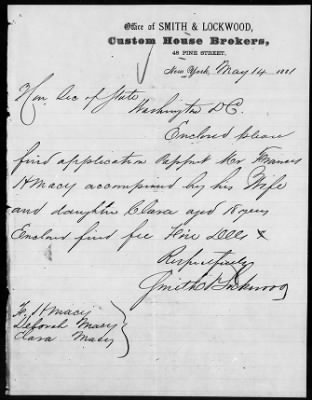 Office of SMITH & LOCKWOOD,
Custom House Brokers,
48 PINE STREET,
New York, May 14 1881
Hon. Sec of State
Washington DC.
Enclosed please
find application Passpt Mr Francis
H Macy accompined by his Wife
and daughter Clara aged 18 years
Enclosed find fee Five Dolls
Respectfully
Smith & Lockwood
F. H Macy
Deborah Macy
Clara Macy